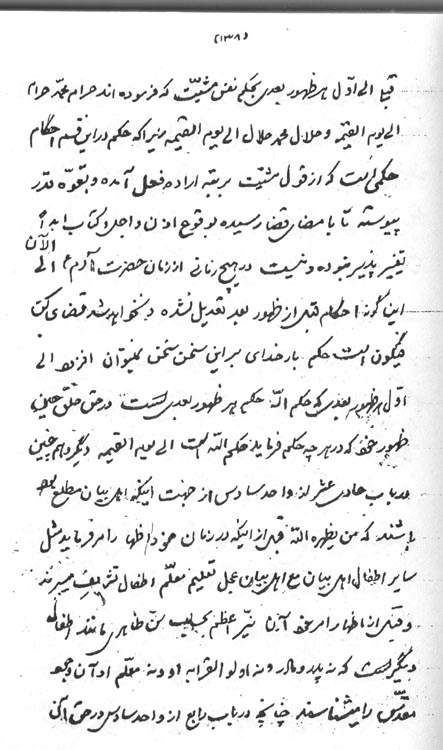 (۱۳۸)
قبل الی اول هر ظهور بعدی بحکم نفس مشیّت که فرموده اند حرام محمّد حرام
الی یوم القیمه و حلال محمد حلال الی یوم القیمه زیرا که حکم در این قسم احکام
حکمی است که از قول مشیّت بر تبه اراده فعل آمده و بقوّه قدر
پیوسته تا بامضای قضا رسیده بوقوع اذن و اجل و کتاب ابداً
تغییر پذیر نبوده و نیست در هیچ زمانی از زمان حضرت آدم ع الی الآن
این گونه احکام قبل از ظهور بعد تعدیل نشده و نخواهد شد قضای کن
فیکون است حکم بار خدای بر این سخن سخن نمیتوان افزود الی
اول هر ظهور بعدی که حکم اللّه حکم هر ظهور بعدی است در حق خلق حین
ظهور خود که در هر چه حکم فرماید حکم اللّه است الی یوم القیمه دیگر و هم چنین
در باب حادی عشر از واحد سادس از جهت اینکه اهل بیان مطلع بوده
باشند که من یظهره اللّه قبل از اینکه در زمان خود اظهار امر فرماید مثل
سایر اطفال اهل بیان مع اهل بیان محل تعلیم معلّم اطفال تشریف میبرند
و قبل از اظهار امر خود آن نیّر اعظم بحسب سنّ ظاهری مانند اطفال
دیگر است که نه پدر و مادر و نه اولو القرابه او و نه معلّم او آن وجود
مقدّس را میشناسند چنانچه در باب رابع از واحد سادس در حق آن